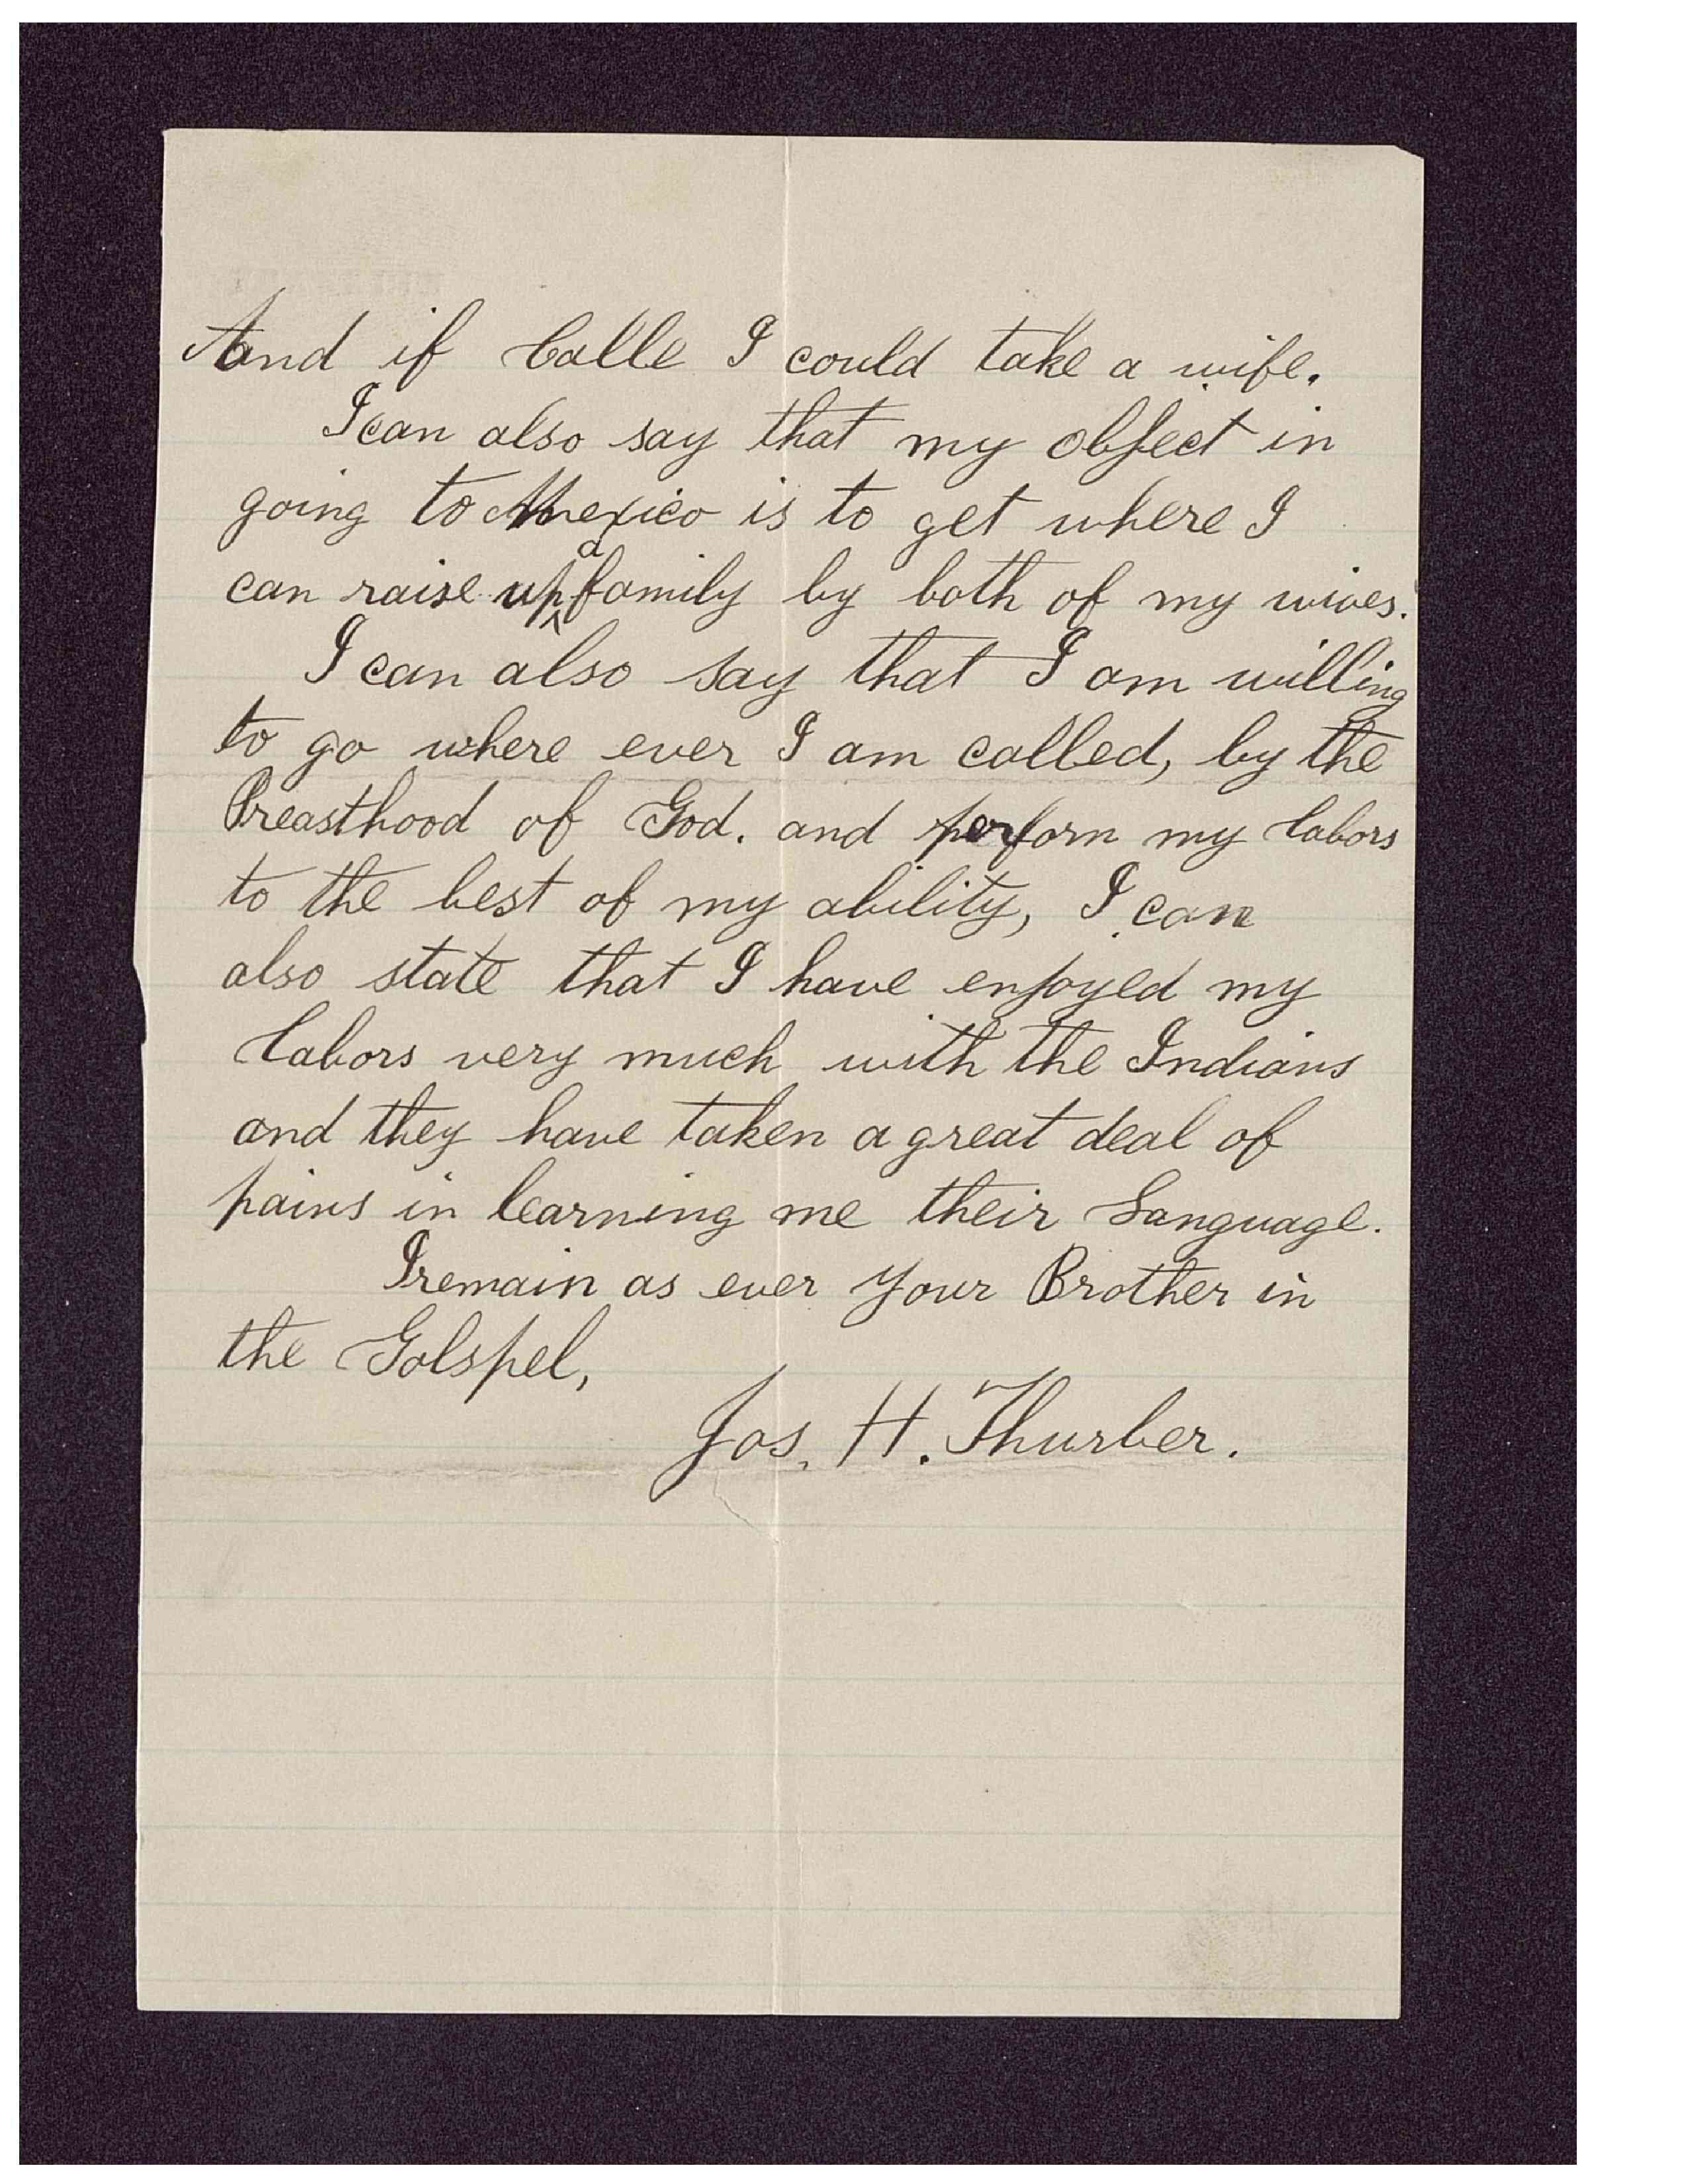 And if Calle I could take a wife.
I can also say that my object in
going to Mexico is to get where I
can raise up a family by both of my wives.
I can also say that I am willing
to go where ever I am called, by the
Preasthood of God. and perform my labors
to the best of my ability, I can
also state that I have enjoyed my
labors very much with the Indians
and they have taken a great deal of
pains in learning me their Language.
I remain as ever Your Brother in
the Golspel,
Jos. H. Thurber.